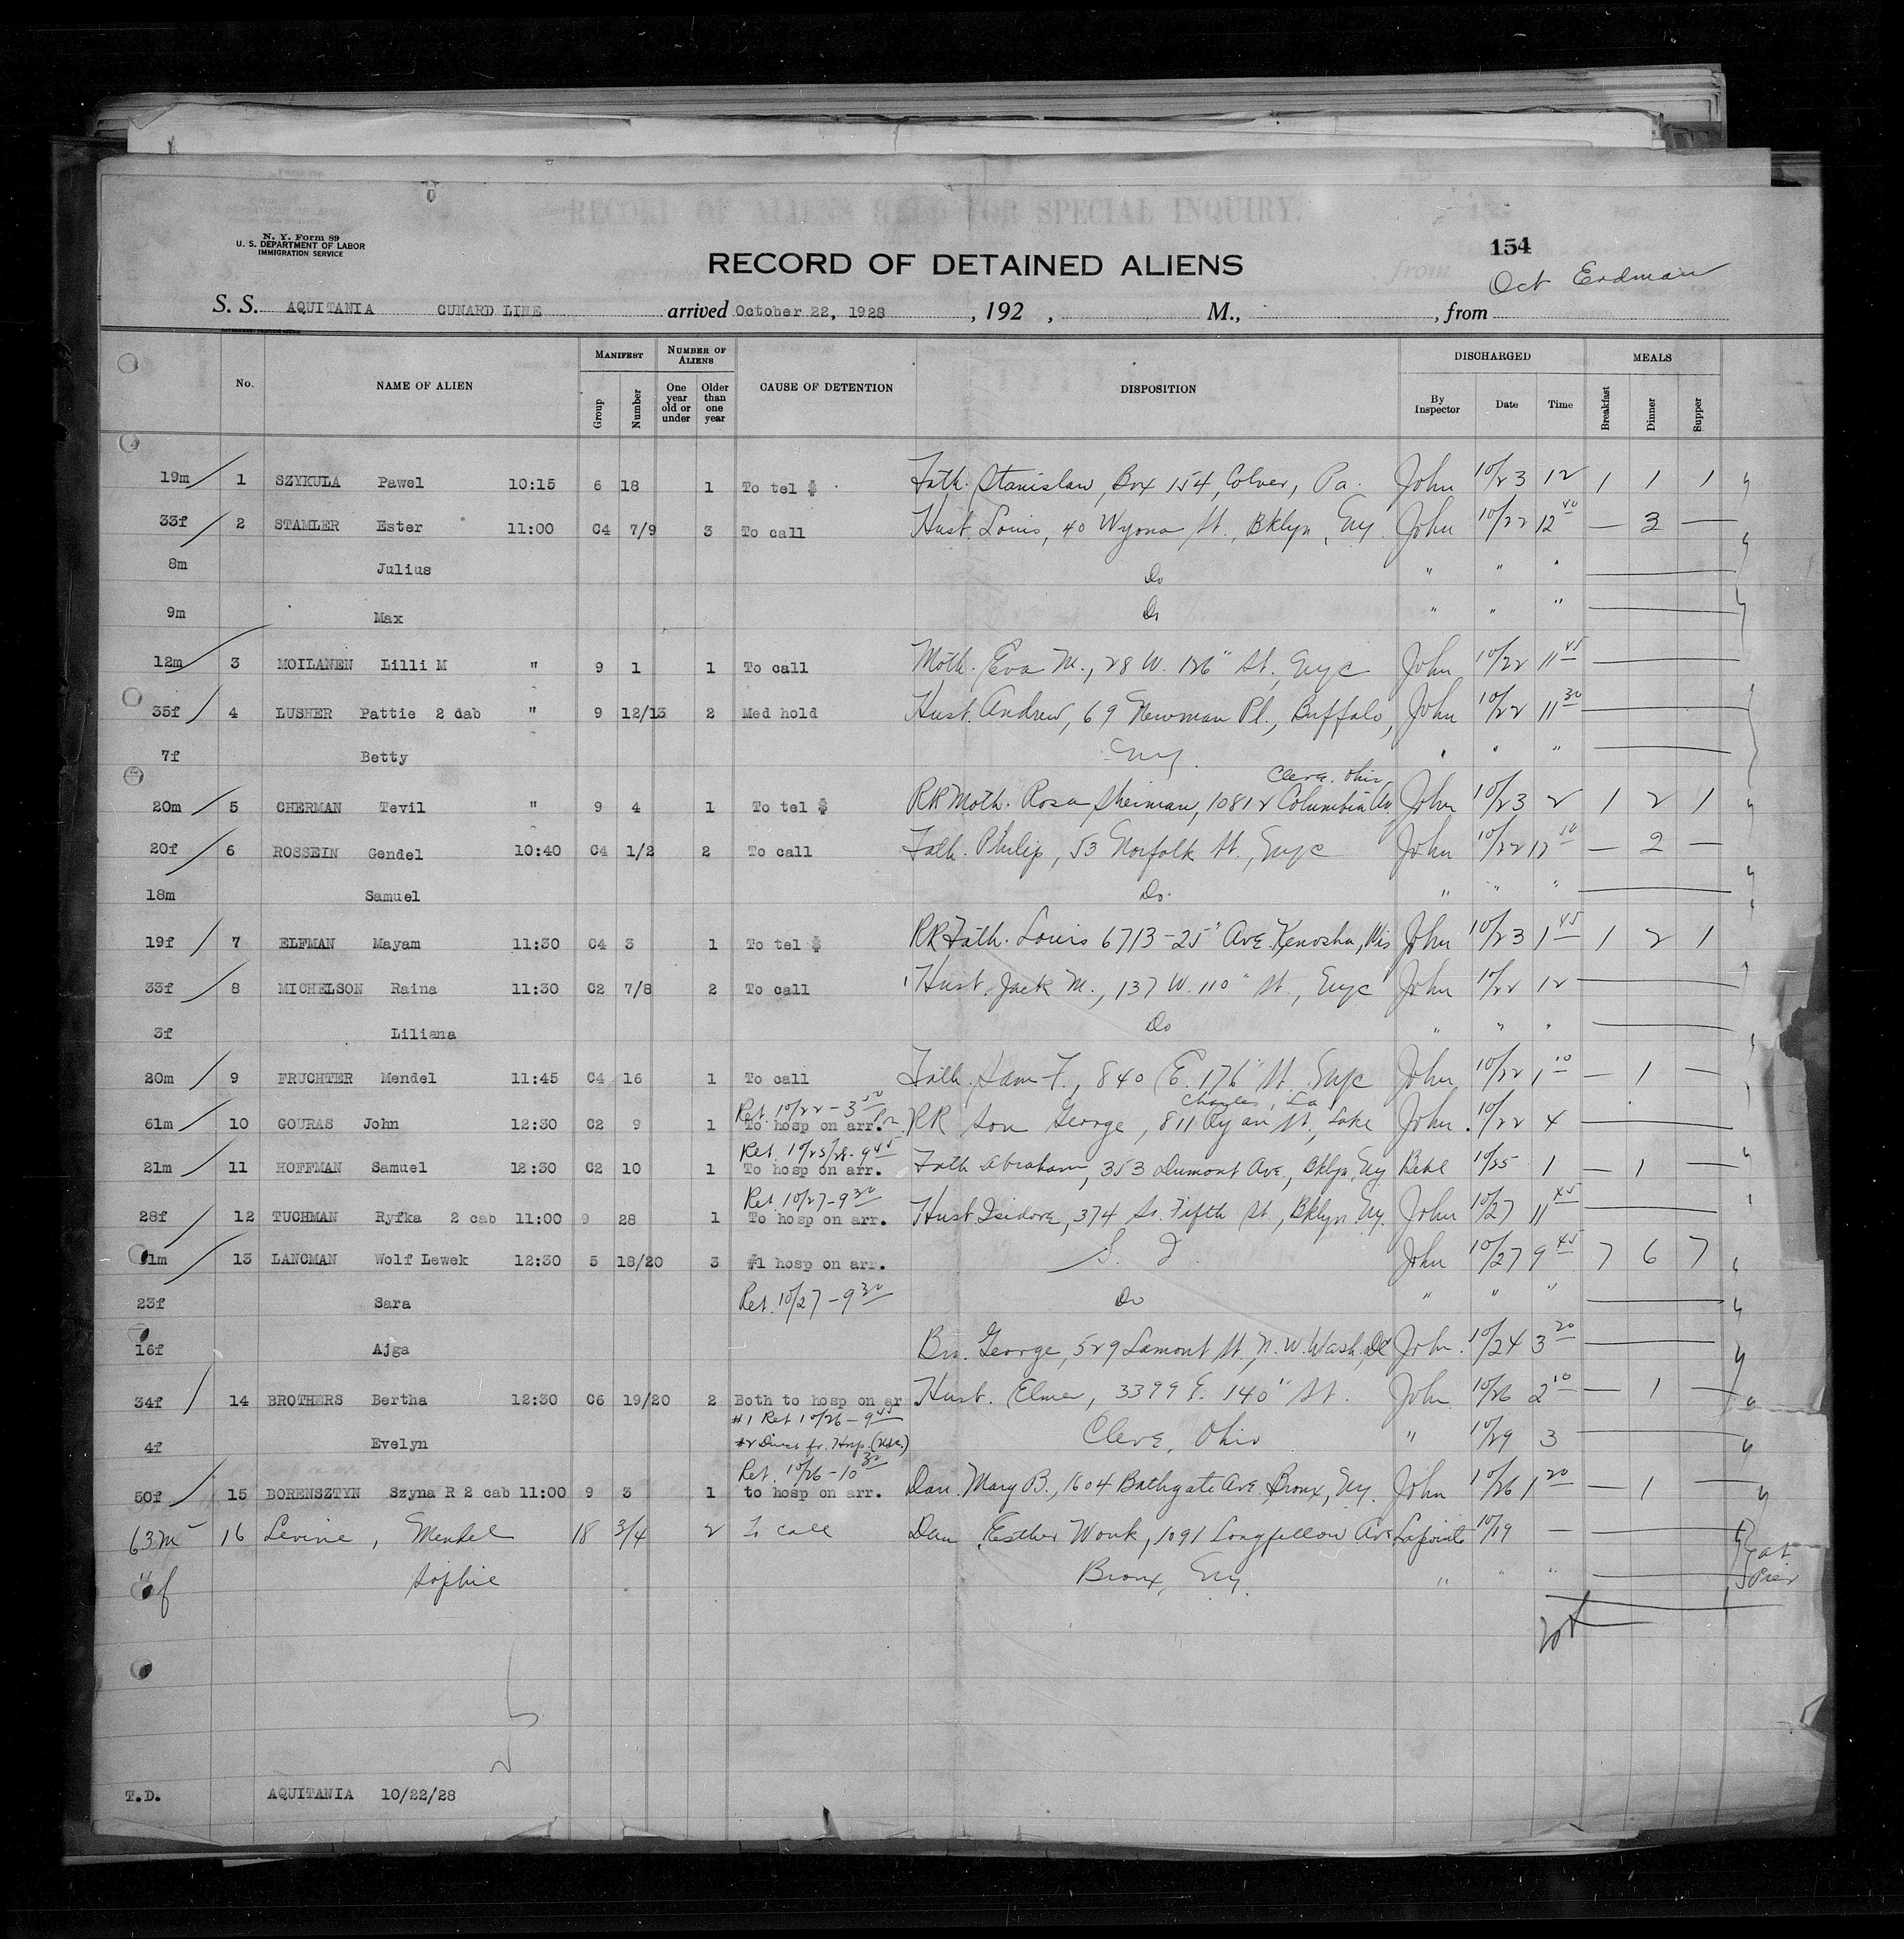 N. Y. Form 89
U. S. DEPARTMENT OF LABOR
IMMIGRATION SERVICE
RECORD OF ALIENS HELD FOR SPECIAL INQUIRY.
154
RECORD OF DETAINED ALIENS
Oct Erdman
S. S. AQUITANIA CUNARD LINE arrived October 22, 1928, 192 , M., , from
No. NAME OF ALIEN MANIFEST Group Number NUMBER OF ALIENS One year old or under Older than one year CAUSE OF DETENTION DISPOSITION DISCHARGED By Inspector Date Time MEALS Breakfast Dinner Supper
19m 1 SZYKULA Pawel 10:15 6 18 1 To tel $ Fath. Stanislaw, Box 154, Colver, Pa. John 10/23 12 1 1 1
33f 2 STAMLER Ester 11:00 C4 7/9 3 To call Husb. Louis, 40 Wyona St., Bklyn, Ny John 10/22 12 40 — 3 —
8m Julius Do " " "
9m Max Do " " "
12m 3 MOILANEN Lilli M " 9 1 1 To call Moth. Eva M., 28 W. 126" St., Nyc John 10/22 11 45
35f 4 LUSHER Pattie 2 cab " 9 12/13 2 Med hold Husb. Andrew, 69 Newman Pl., Buffalo, John 10/22 11 30
7f Betty Ny. " " "
Cleve. Ohio
20m 5 CHERMAN Tevil " 9 4 1 To tel $ RR Moth. Rosa Sheiman, 10812 Columbia Av. John 10/23 2 1 2 1
20f 6 ROSSEIN Gendel 10:40 C4 1/2 2 To call Fath. Philip, 53 Norfolk St., Nyc John 10/22 12 50 — 2 —
18m Samuel Do. " " "
19f 7 ELFMAN Mayam 11:30 C4 3 1 To tel $ RR Fath. Louis 6713-25" Ave. Kenosha, Wis John 10/23 1 45 1 2 1
33f 8 MICHELSON Raina 11:30 C2 7/8 2 To call Husb. Jack M., 137 W. 110" St., Nyc John 10/22 12
3f Liliana Do " " "
20m 9 FRUCHTER Mendel 11:45 C4 16 1 To call Fath. Sam F., 840 E. 176" St. Nyc John 10/22 1 10 — 1 —
Ret 10/22-3 50 Charles, La
61m 10 GOURAS John 12:30 C2 9 1 To hosp on arr. RR Son George, 811 Ryan St., Lake John. 10/22 4
Ret. 10/25/28-9 45
21m 11 HOFFMAN Samuel 12:30 C2 10 1 To hosp on arr. Fath Abraham, 353 Dumont Ave., Bklyn, Ny 10/25 1 — 1 —
Ret. 10/27-9 30
28f 12 TUCHMAN Ryfka 2 cab 11:00 9 28 1 To hosp on arr. Husb. Isidore, 374 So. Fifth St., Bklyn Ny. John 10/27 11 45
1m 13 LANCMAN Wolf Lewek 12:30 5 18/20 3 #1 hosp on arr. S. I. John 10/27 9 45 7 6 7
23f Sara Ret. 10/27-9 30 Do " " "
16f Ajga Bro. George, 529 Lamont St. N.W. Wash. DC John. 10/24 3 20
34f 14 BROTHERS Bertha 12:30 C6 19/20 2 Both to hosp on ar Husb. Elmer, 3399 E. 140" St. John 10/26 2 10 — 1 —
#1 Ret 10/26-9 45
4f Evelyn #2 Direct fr. Hosp. Cleve, Ohio " 10/29 3
Ret. 10/26-10 30
50f 15 BORENSZTYN Szyna R 2 cab 11:00 9 3 1 to hosp on arr. Dau. Mary B., 1604 Bathgate Ave. Bronx, Ny. John 10/26 1 20 — 1 —
63m 16 Levine, Mendel 18 3/4 2 To call Dau. Esther Wouk, 1091 Longfellow Ave Lapointe 10/19 —
" f Sophie Bronx, Ny. " " " at Pier
T.D. AQUITANIA 10/22/28